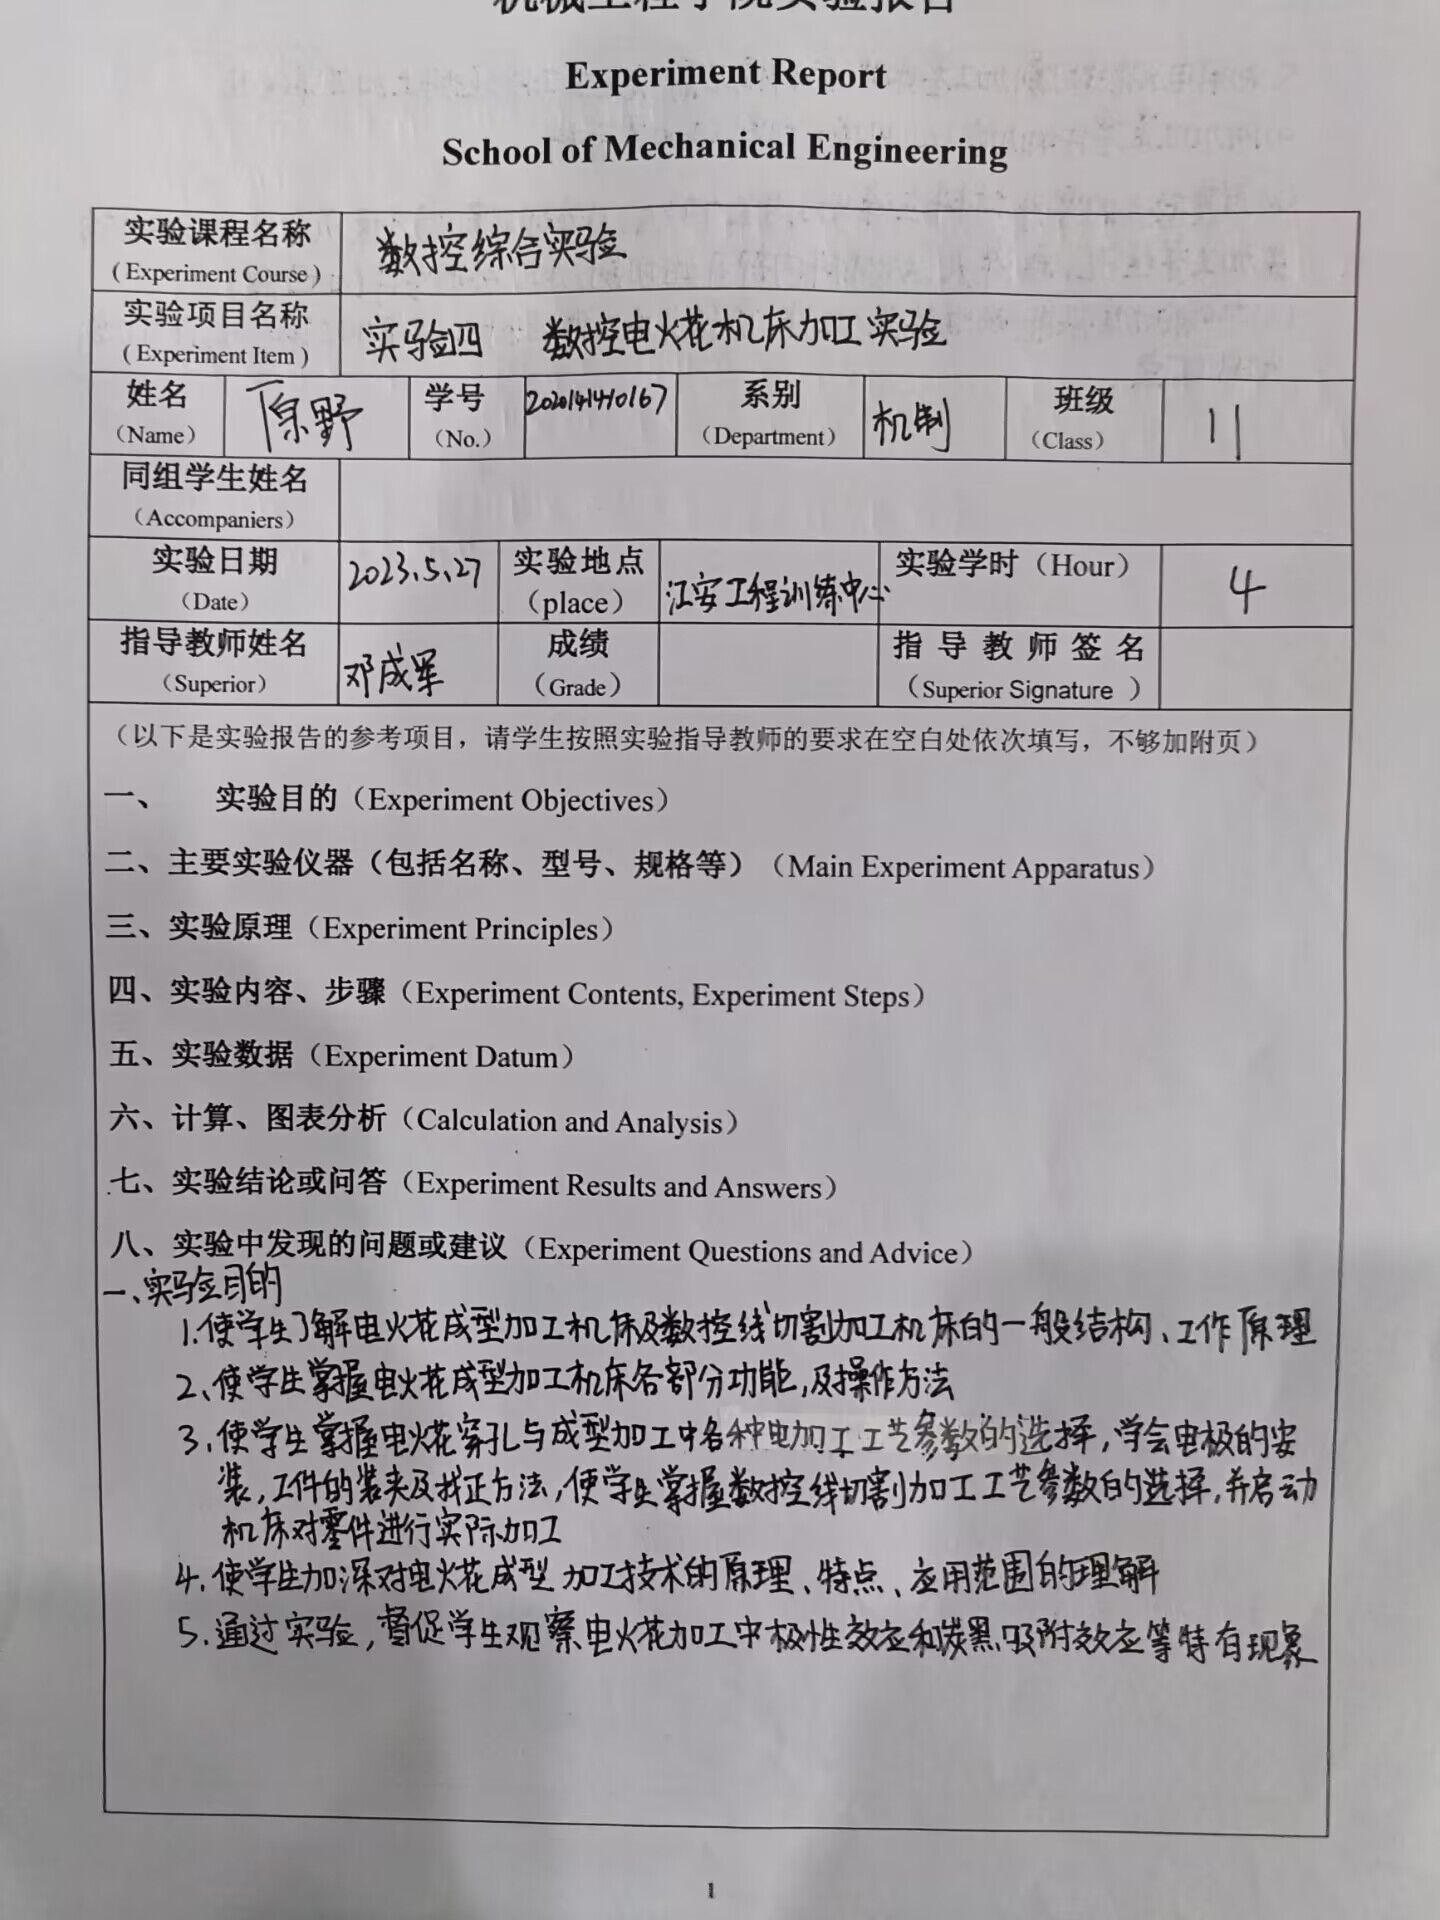 机械工程学院实验报告
Experiment Report
School of Mechanical Engineering
实验课程名称 数控综合实验
(Experiment Course)
实验项目名称 实验四 数控电火花机床加工实验
(Experiment Item)
姓名 原野 学号 2020141410167 系别 机制 班级 11
(Name) (No.) (Department) (Class)
同组学生姓名
(Accompaniers)
实验日期 2023.5.27 实验地点 江安工程训练中心 实验学时(Hour) 4
(Date) (place)
指导教师姓名 邓成军 成绩 指导教师签名
(Superior) (Grade) (Superior Signature )
(以下是实验报告的参考项目,请学生按照实验指导教师的要求在空白处依次填写,不够加附页)
一、 实验目的(Experiment Objectives)
二、主要实验仪器(包括名称、型号、规格等)(Main Experiment Apparatus)
三、实验原理(Experiment Principles)
四、实验内容、步骤(Experiment Contents, Experiment Steps)
五、实验数据(Experiment Datum)
六、计算、图表分析(Calculation and Analysis)
七、实验结论或问答(Experiment Results and Answers)
八、实验中发现的问题或建议(Experiment Questions and Advice)
一、实验目的
1.使学生了解电火花成型加工机床及数控线切割加工机床的一般结构、工作原理
2、使学生掌握电火花成型加工机床各部分功能,及操作方法
3.使学生掌握电火花穿孔与成型加工中各种电加工工艺参数的选择,学会电极的安
装,工件的装夹及找正方法,使学生掌握数控线切割加工工艺参数的选择,并启动
机床对零件进行实际加工
4.使学生加深对电火花成型加工技术的原理、特点、应用范围的理解
5.通过实验,督促学生观察电火花加工中极性效应和炭黑吸附效应等特有现象
1